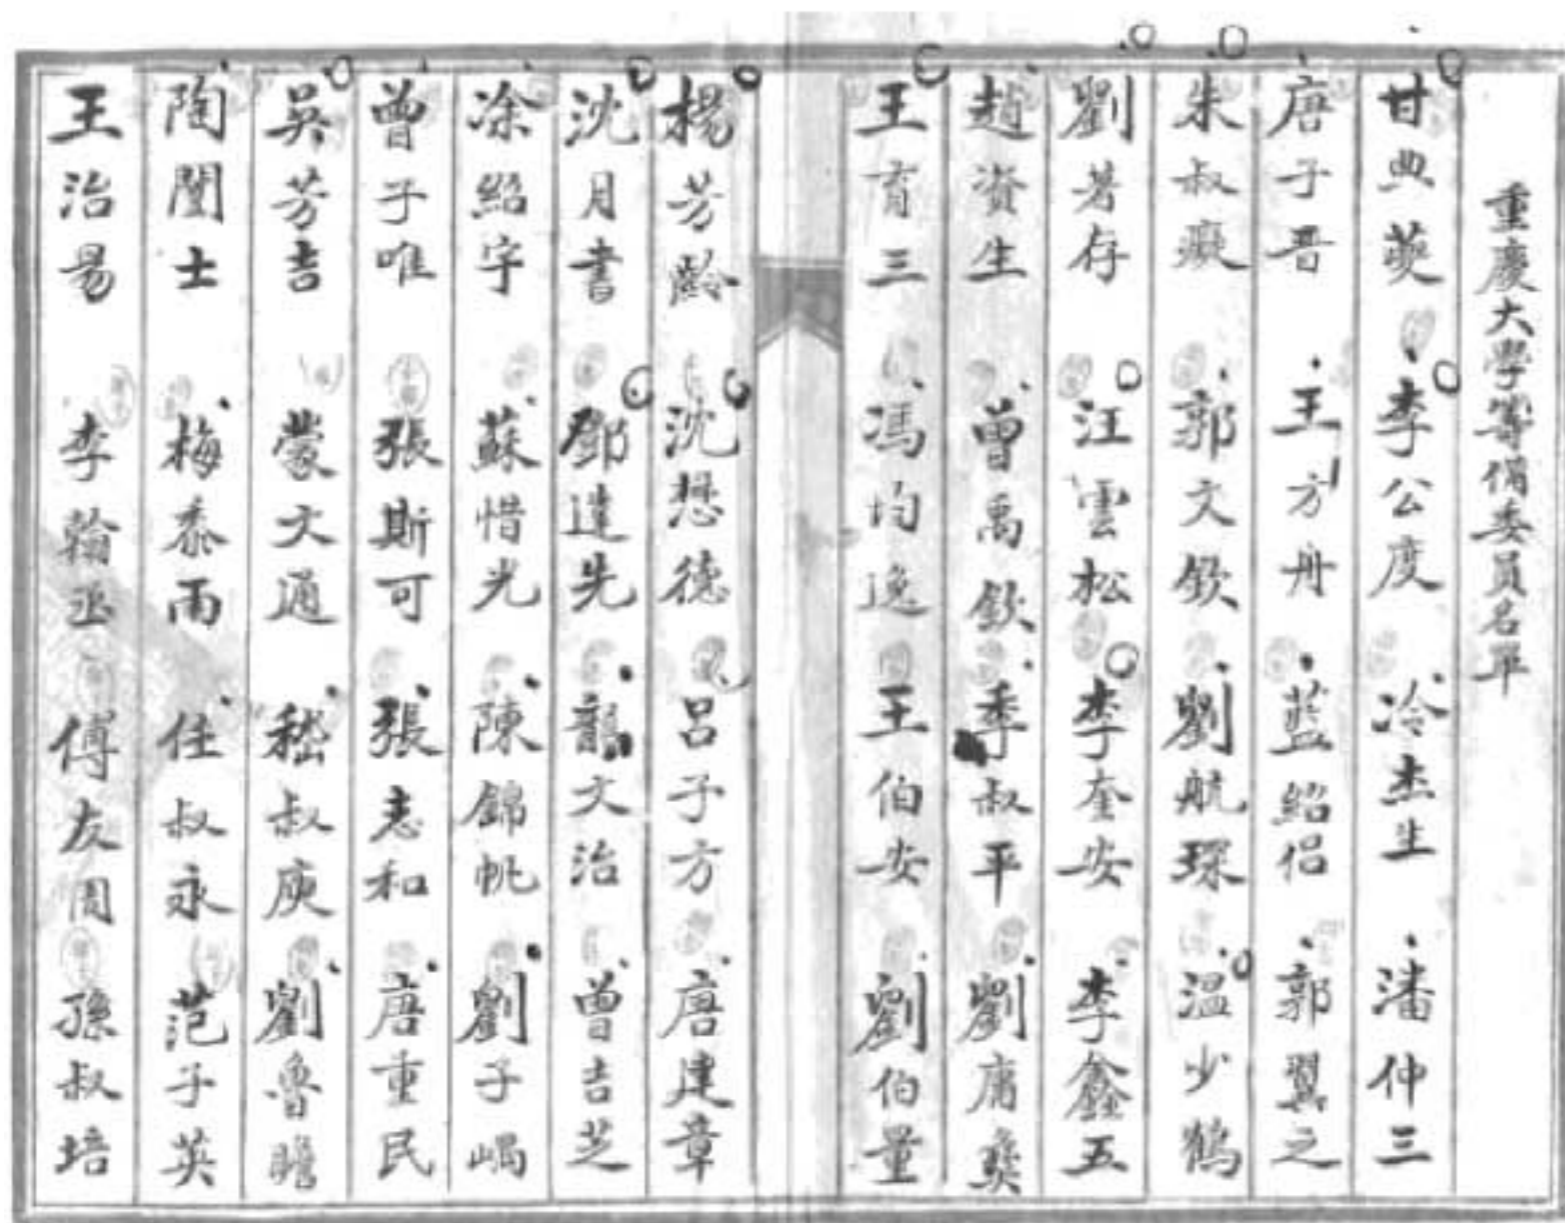 重慶大學籌備委員名單
甘典夔 李公度 冷杰生 潘仲三
唐子晋 王方舟 藍紹侣 郭翼之
朱叔癡 郭文欽 劉航琛 温少鶴
劉著存 汪雲松 李奎安 李鑫五
趙資生 曾禹欽 季叔平 劉庸奚
王育三 馮均逸 王伯安 劉伯量
楊芳齡 沈懋德 呂子方 唐建章
沈月書 鄧達先 龍文治 曾吉芝
凃紹宇 蘇惜光 陳錦帆 劉子嵎
曾子唯 張斯可 張志和 唐重民
吳芳吉 蒙文通 嵇叔庾 劉魯瞻
陶闓士 梅黍雨 任叔永 范子英
王治易 李翰丞 傅友周 孫叔培